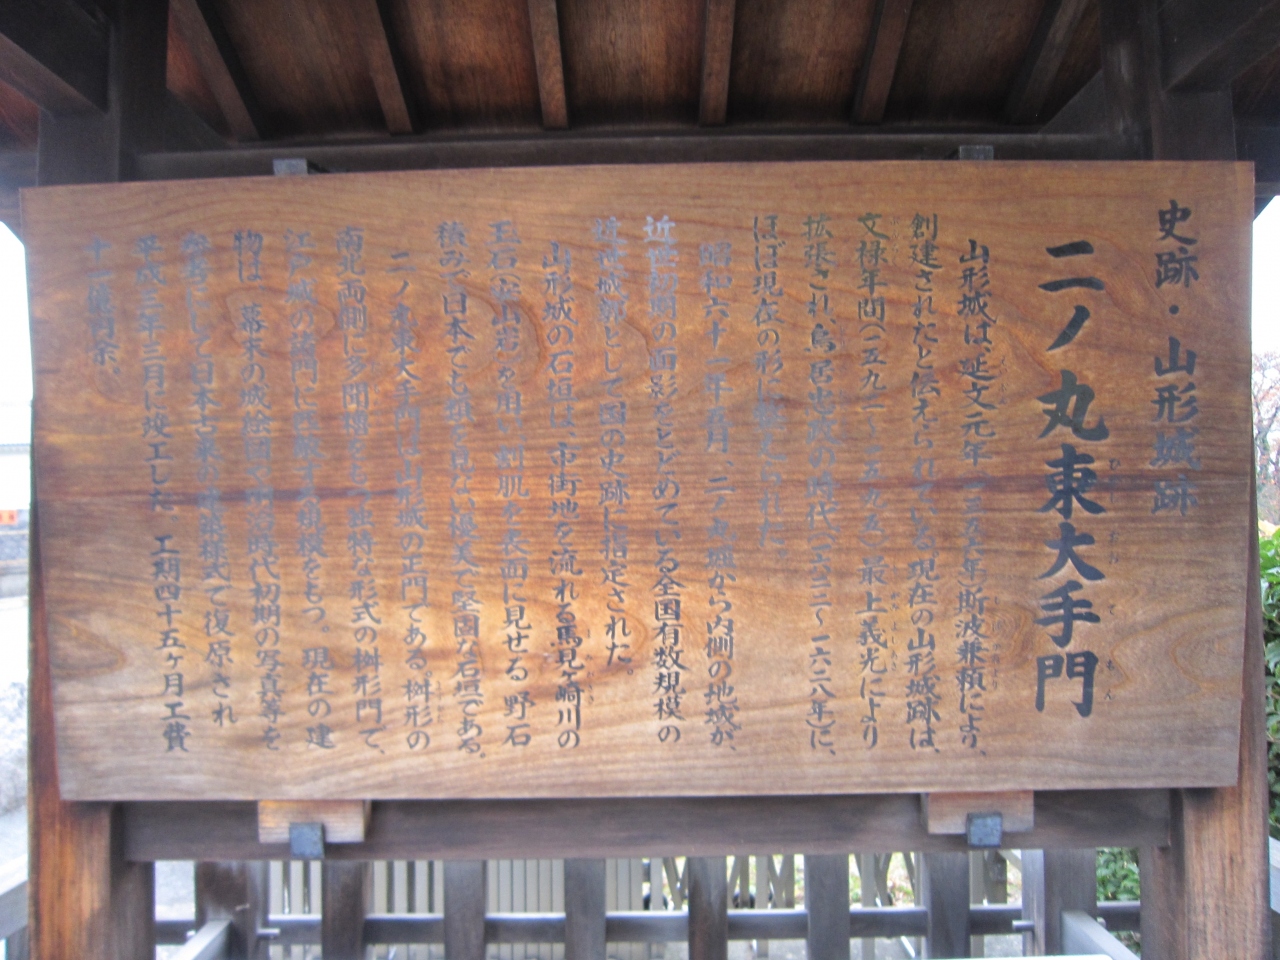 史跡・山形城跡
二ノ丸東大手門
ひがしおおてもん
山形城は、延文元年(一三五六年)斯波兼頼により、
創建されたと伝えられている。現在の山形城跡は、
文禄年間(一五九二〜一五九五)最上義光により
拡張され、鳥居忠政の時代(一六二二〜一六二八年)に、
ほぼ現在の形に整えられた。
昭和六十一年五月、二ノ丸城から内側の地域が、
近世初期の面影をとどめている全国有数規模の
近世城郭として国の史跡に指定された。
山形城の石垣は、市街地を流れる馬見ヶ崎川の
玉石(安山岩)を用い、割肌を表面に見せる野石
積みで日本でも類を見ない優美で堅固な石垣である。
二ノ丸東大手門は山形城の正門である。桝形の
南北両側に多聞櫓をもつ独特な形式の桝形門で、
江戸城の諸門に匹敵する規模をもつ。現在の建
物は、幕末の城絵図や明治時代初期の写真等を
参考にして日本古来の建築様式で復原され
平成三年三月に竣工した。工期四十五ヶ月工費
十一億円余。